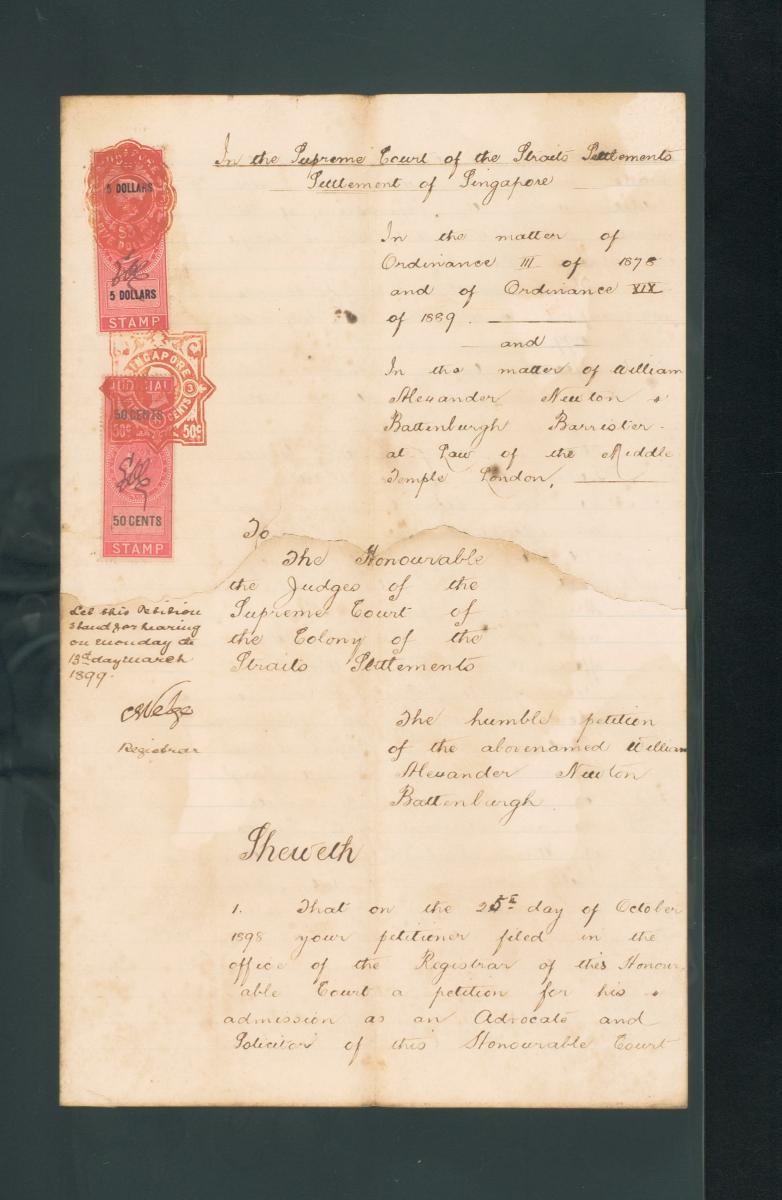 In the Supreme Court of the Straits Settlements
Settlement of Singapore
JUDICIAL
5 DOLLARS
FIVE DOLLARS
5 DOLLARS
STAMP
SINGAPORE
JUDICIAL
50 CENTS
50c 50c
50 CENTS
STAMP
In the matter of
Ordinance III of 1878
and of Ordinance XIX
of 1889.
and
In the matter of William
Alexander Newton
Battenburgh Barrister-
at Law of the Middle
Temple London.
To
The Honourable
the Judges of the
Supreme Court of
the Colony of the
Straits Settlements
Let this Petition
stand for hearing
on monday the
13th day march
1899.
Registrar
The humble petition
of the abovenamed William
Alexander Newton
Battenburgh
Sheweth
1. That on the 25th day of October
1898 your petitioner filed in the
office of the Registrar of this Honour
able Court a petition for his
admission as an Advocate and
Solicitor of this Honourable Court